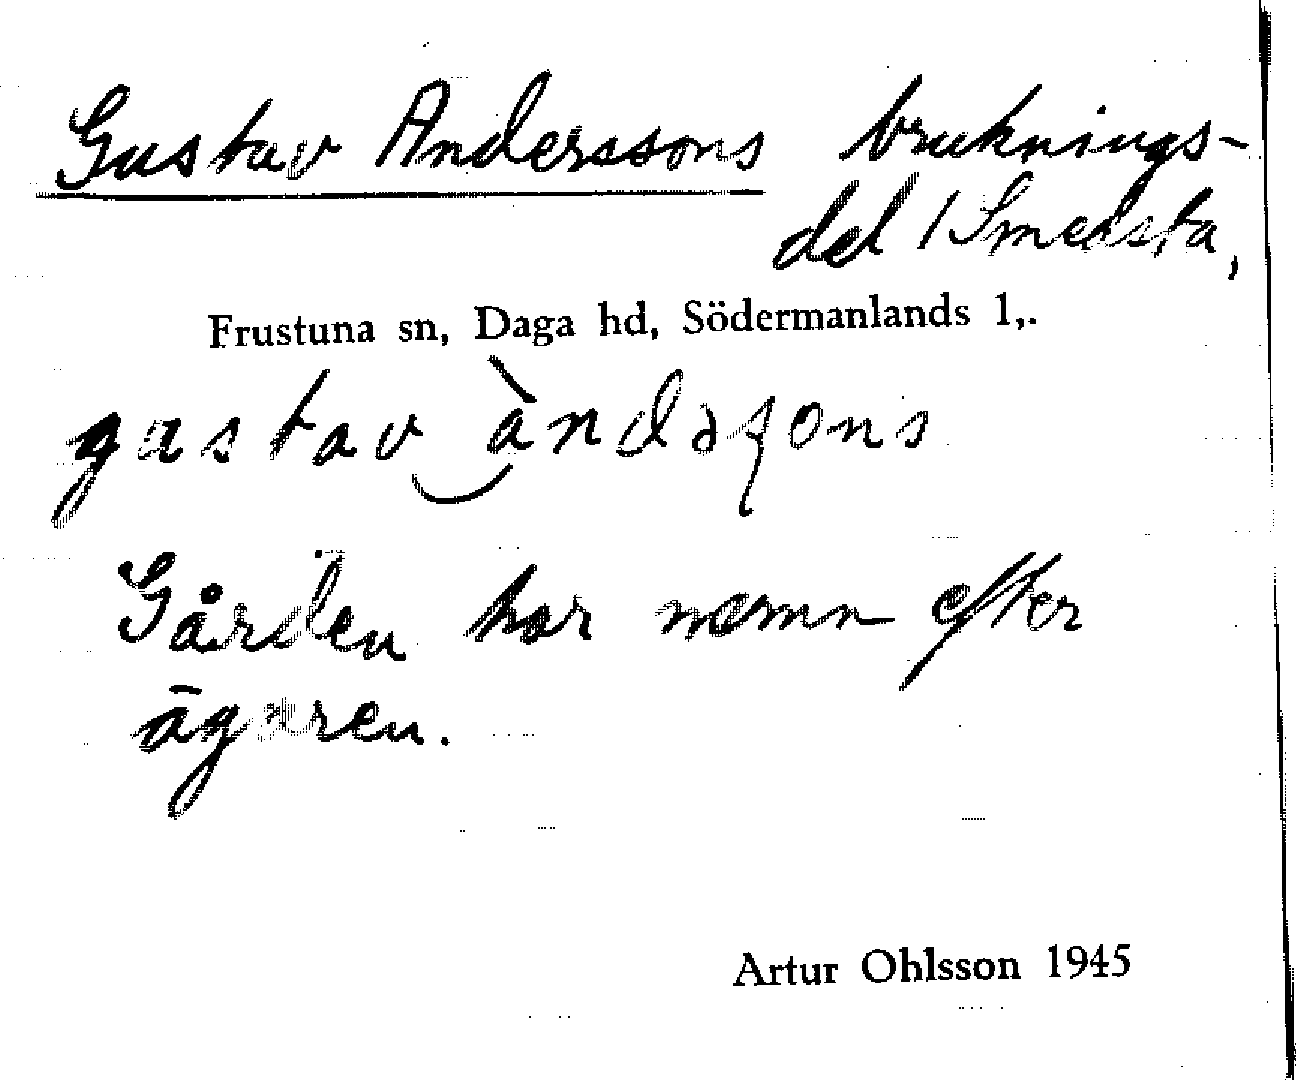 Gustav Anderssons bruknings-
del i Smedsta,
Frustuna sn, Daga hd, Södermanlands l,.
gustav àndəʂons
Gården har namn efter
ägaren.
Artur Ohlsson 1945